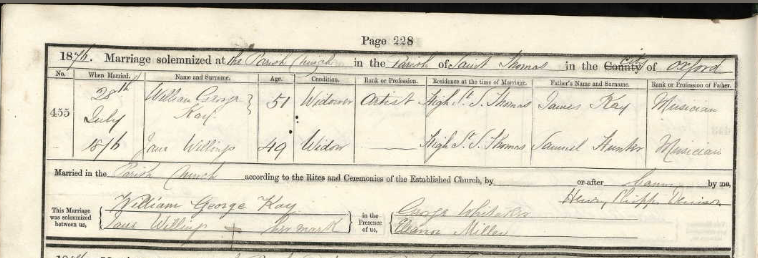 Page 228
1876. Marriage solemnized at the Parish Church in the Parish of Saint Thomas in the County City of Oxford
No. When Married. Name and Surname. Age. Condition. Rank or Profession. Residence at the time of Marriage. Father's Name and Surname. Rank or Profession of Father.
455 28th July 1876 William George Kay 51 Widower Artist High St. S. Thomas James Kay Musician
Jane Willings 49 Widow High St. S. Thomas Samuel Hunter Musician
Married in the Parish Church according to the Rites and Ceremonies of the Established Church, by or after Banns by me,
Henry
This Marriage was solemnized between us, William George Kay
Jane Willings her mark
in the Presence of us, George Whitaker
Eleanor Miller